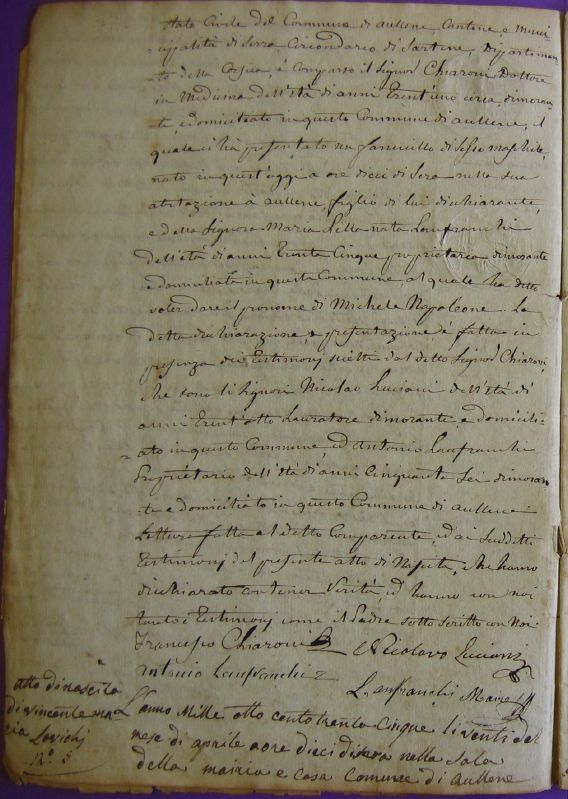 stato Civile del Commune di aullene, Cantone, e Muni-
-cipalità di Serra Circondario di Sartene, Dipartimen-
-to della Corsica, è Comparso il Signor Chiaroni Dottore
in Medicina dell'età di anni Trent'uno circa, dimoran-
te, e domiciliato in questo Commune di aullene, il
quale ci ha presentato un fanciullo di sesso maschile,
nato in quest'oggi a ore dieci di sera nella sua
abitazione à aullene, figlio di lui dichiarante,
e della Signora Maria Lilla nata Lanfranchi
dell'età di anni Trenta Cinque proprietaria dimorante
e domiciliata in questa Commune, al quale ha detto
voler dare il pronome di Michele Napoleone. La
detta dichiarazione, e presentazione è fatta in
presenza dei Testimonj scielti dal detto Signor Chiaroni,
che sono li Signori Nicolao Luciani dell'età di
anni Trent'otto Lavratore dimorante, e domicili-
-ato in questo Commune, ed Antonio Lanfranchi
Proprietario dell'età di anni Cinquanta Sei dimoran
te e domiciliato in questo Commune di aullene
Lettura fatta al detto Comparente, ed ai suddetti
Testimonj del presente atto di Nascita, che hanno
dichiarato contener Verità, ed hanno con noi
tanto i Testimonj come il Padre sotto scritto con Noi
Francesco Chiaroni Nicolavo Luciani
Antonio Lanfranchi
Lanfranchi Maire
atto di nascita
di Vincente ma
ria
No. 5
L'anno Mille otto cento trenta Cinque li venti del
mese di aprile a ore dieci di sera nella Sala
della mairia e Casa Comune di aullene